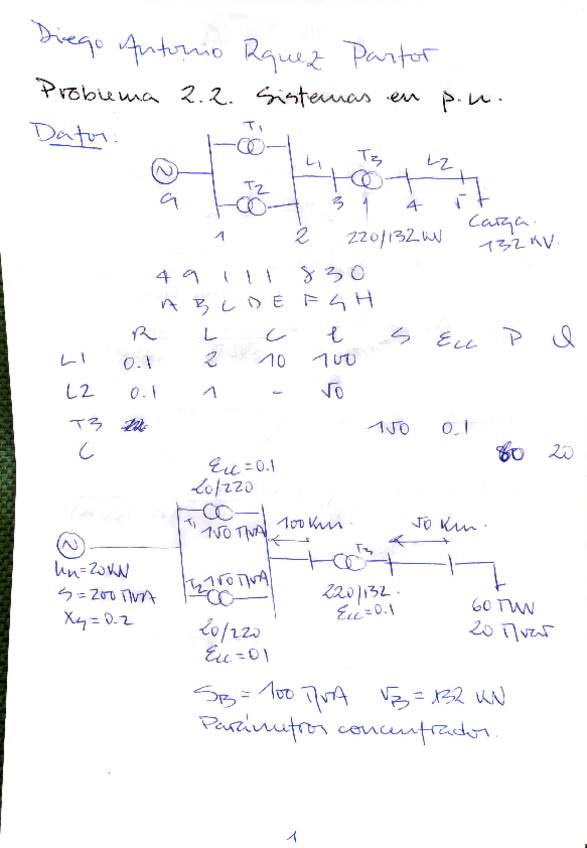 Diego Antonio Rquez Pastor
Problema 2.2. Sistemas en p.u.
Datos:
T1
T2
G
L1
T3
L2
1
2
3
4
5
220/132 kV
Carga
132 kV.
4 9 1 1 1 8 3 0
A B C D E F G H
R L C l S Ecc P Q
L1 0.1 2 10 100
L2 0.1 1 - 50
T3 150 0.1
C 60 20
Ecc=0.1
20/220
T1 150 MVA
100 Km.
50 Km.
T3
Un=20KV
S=200 MVA
XG=0.2
T2 150 MVA
20/220
Ecc=01
220/132.
Ecc=0.1
60 MW
20 Mvar
SB = 100 MVA VB = 132 KV
Parámetros concentrados.
1